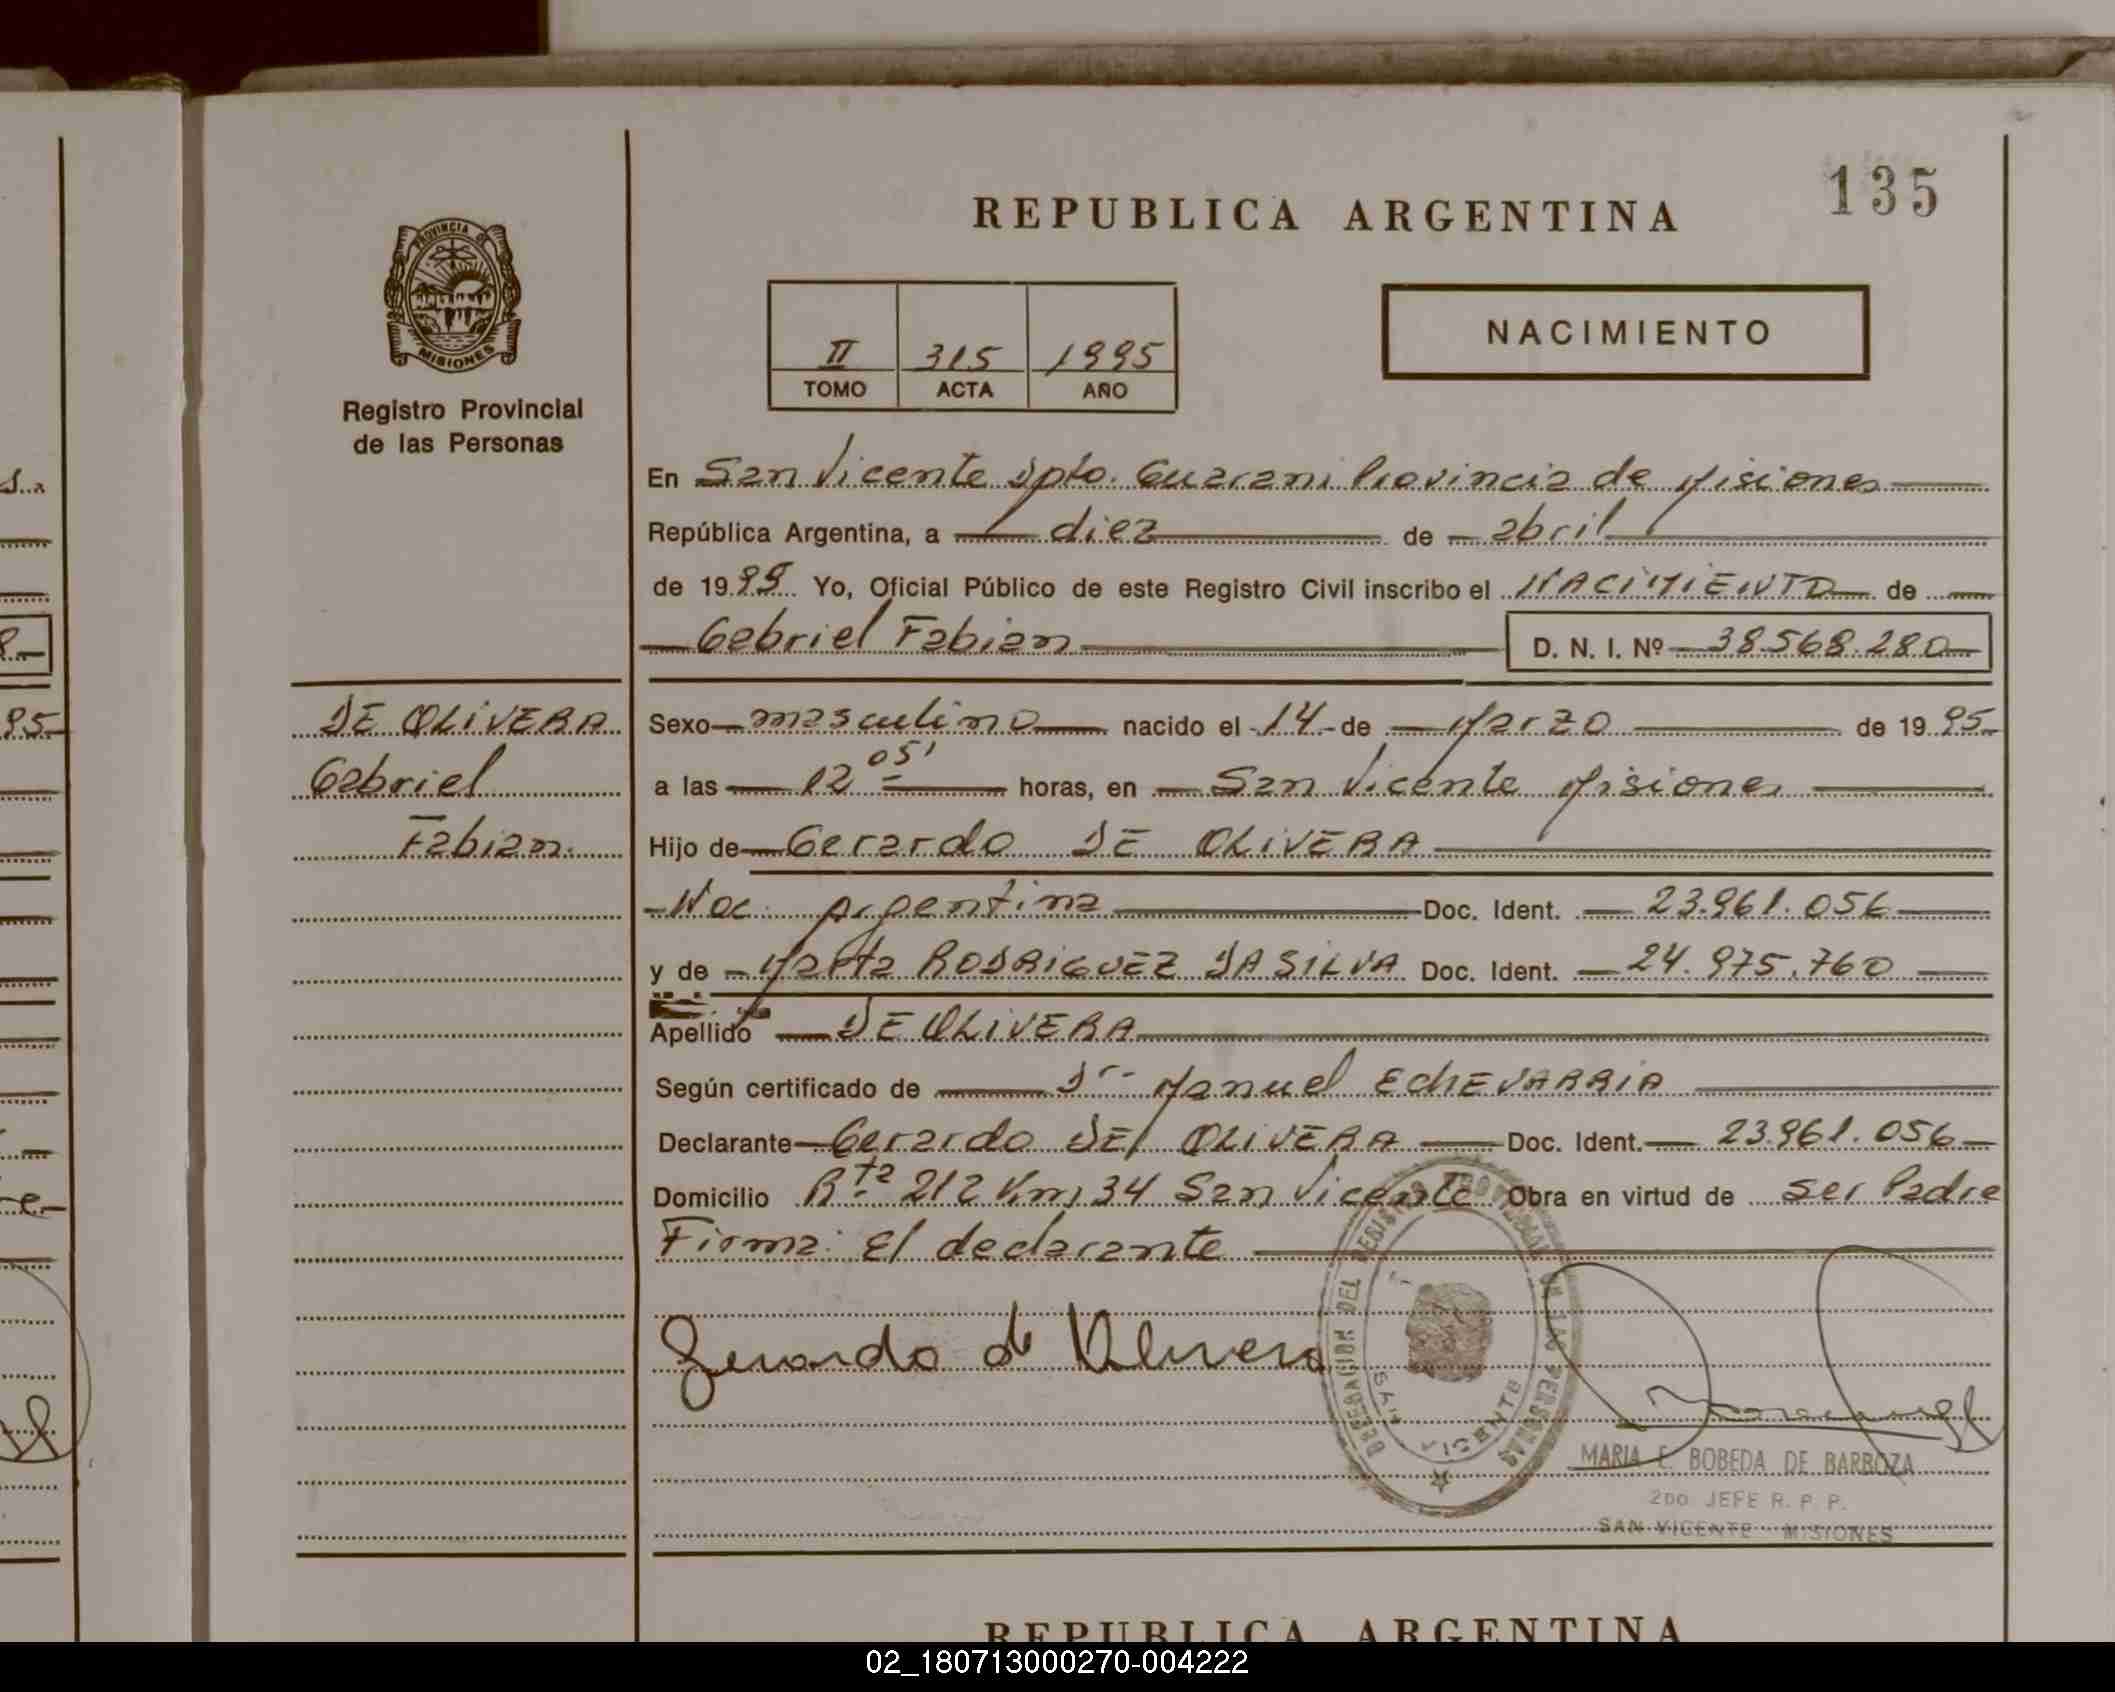 135
REPUBLICA ARGENTINA
PROVINCIA DE
MISIONES
Registro Provincial
de las Personas
NACIMIENTO
II 315 1995
TOMO ACTA AÑO
En San Vicente Dpto. Guarani Provincia de Misiones
República Argentina, a diez de abril
de 1995 Yo, Oficial Público de este Registro Civil inscribo el NACIMIENTO de
Gabriel Fabian D. N. I. Nº 38.568.280
DE OLIVERA
Gabriel
Fabian.
Sexo masculino nacido el 14 de Marzo de 1995
a las 12 05' horas, en San Vicente Misiones
Hijo de Gerardo DE OLIVERA
Nac. Argentina Doc. Ident. 23.961.056
y de Marta RODRIGUEZ DA SILVA Doc. Ident. 24.975.760
Apellido DE OLIVERA
Según certificado de Dr. Manuel EchEVARRIA
Declarante Gerardo DE OLIVERA Doc. Ident. 23.961.056
Domicilio Rta 212 Km 34 San Vicente Obra en virtud de ser Padre
Firma: El declarante
Gerardo de Olivera
DELEGACION DEL REGISTRO PROVINCIAL DE LAS PERSONAS
SAN VICENTE
MARIA E. BOBEDA DE BARBOZA
2DO JEFE R. P. P.
SAN VICENTE - MISIONES
REPUBLICA ARGENTINA
02_180713000270-004222